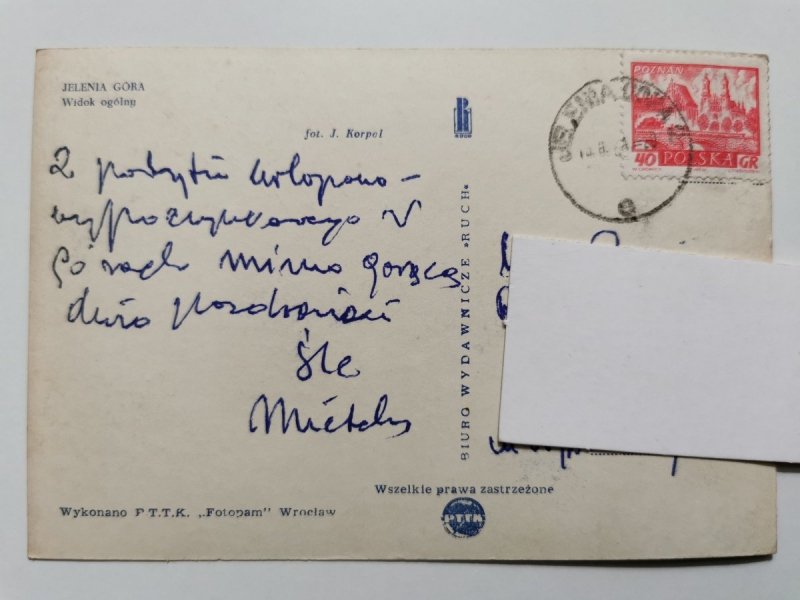 JELENIA GÓRA
Widok ogólny
fot. J. Korpal
RUCH
POZNAŃ
40 POLSKA GR
JELENIA GÓRA
e
Z pobytu
wypoczynkowego w
górach mimo
dużo pozdrowień
śle
BIURO WYDAWNICZE «RUCH»
Wszelkie prawa zastrzeżone
Wykonano P.T.T.K. „Fotopam" Wrocław
P.T.T.K.